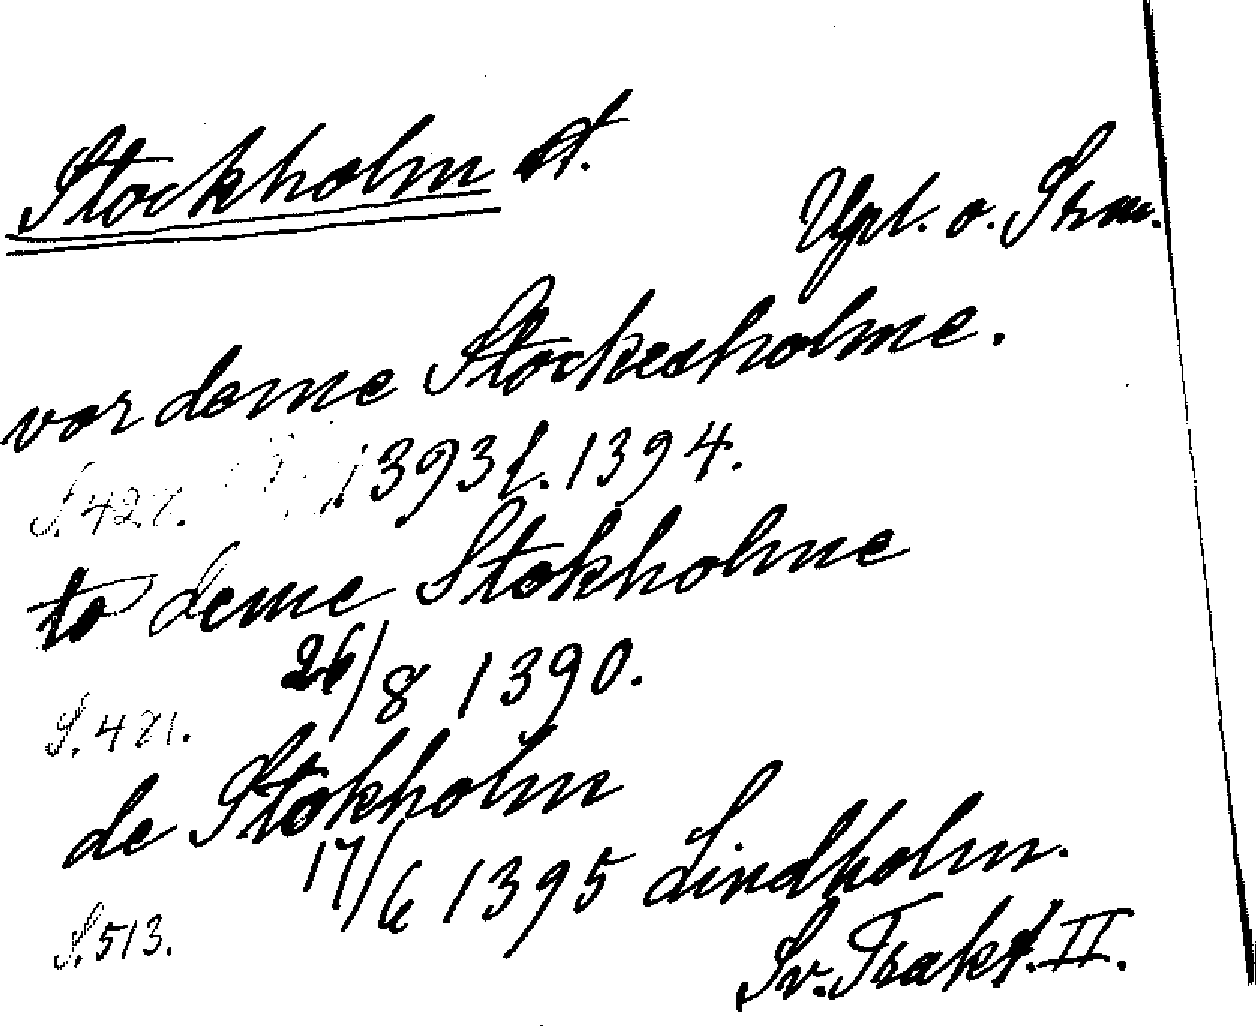 Stockholm st.
Uppl. o. Srm.
vor deme Stockesholme.
S. 427. 1393 f. 1394.
to deme Stokholme
26/8 1390.
S. 421.
de Stokholm
17/6 1395 Lindholm.
S. 513.
Sv. Trakt. II.